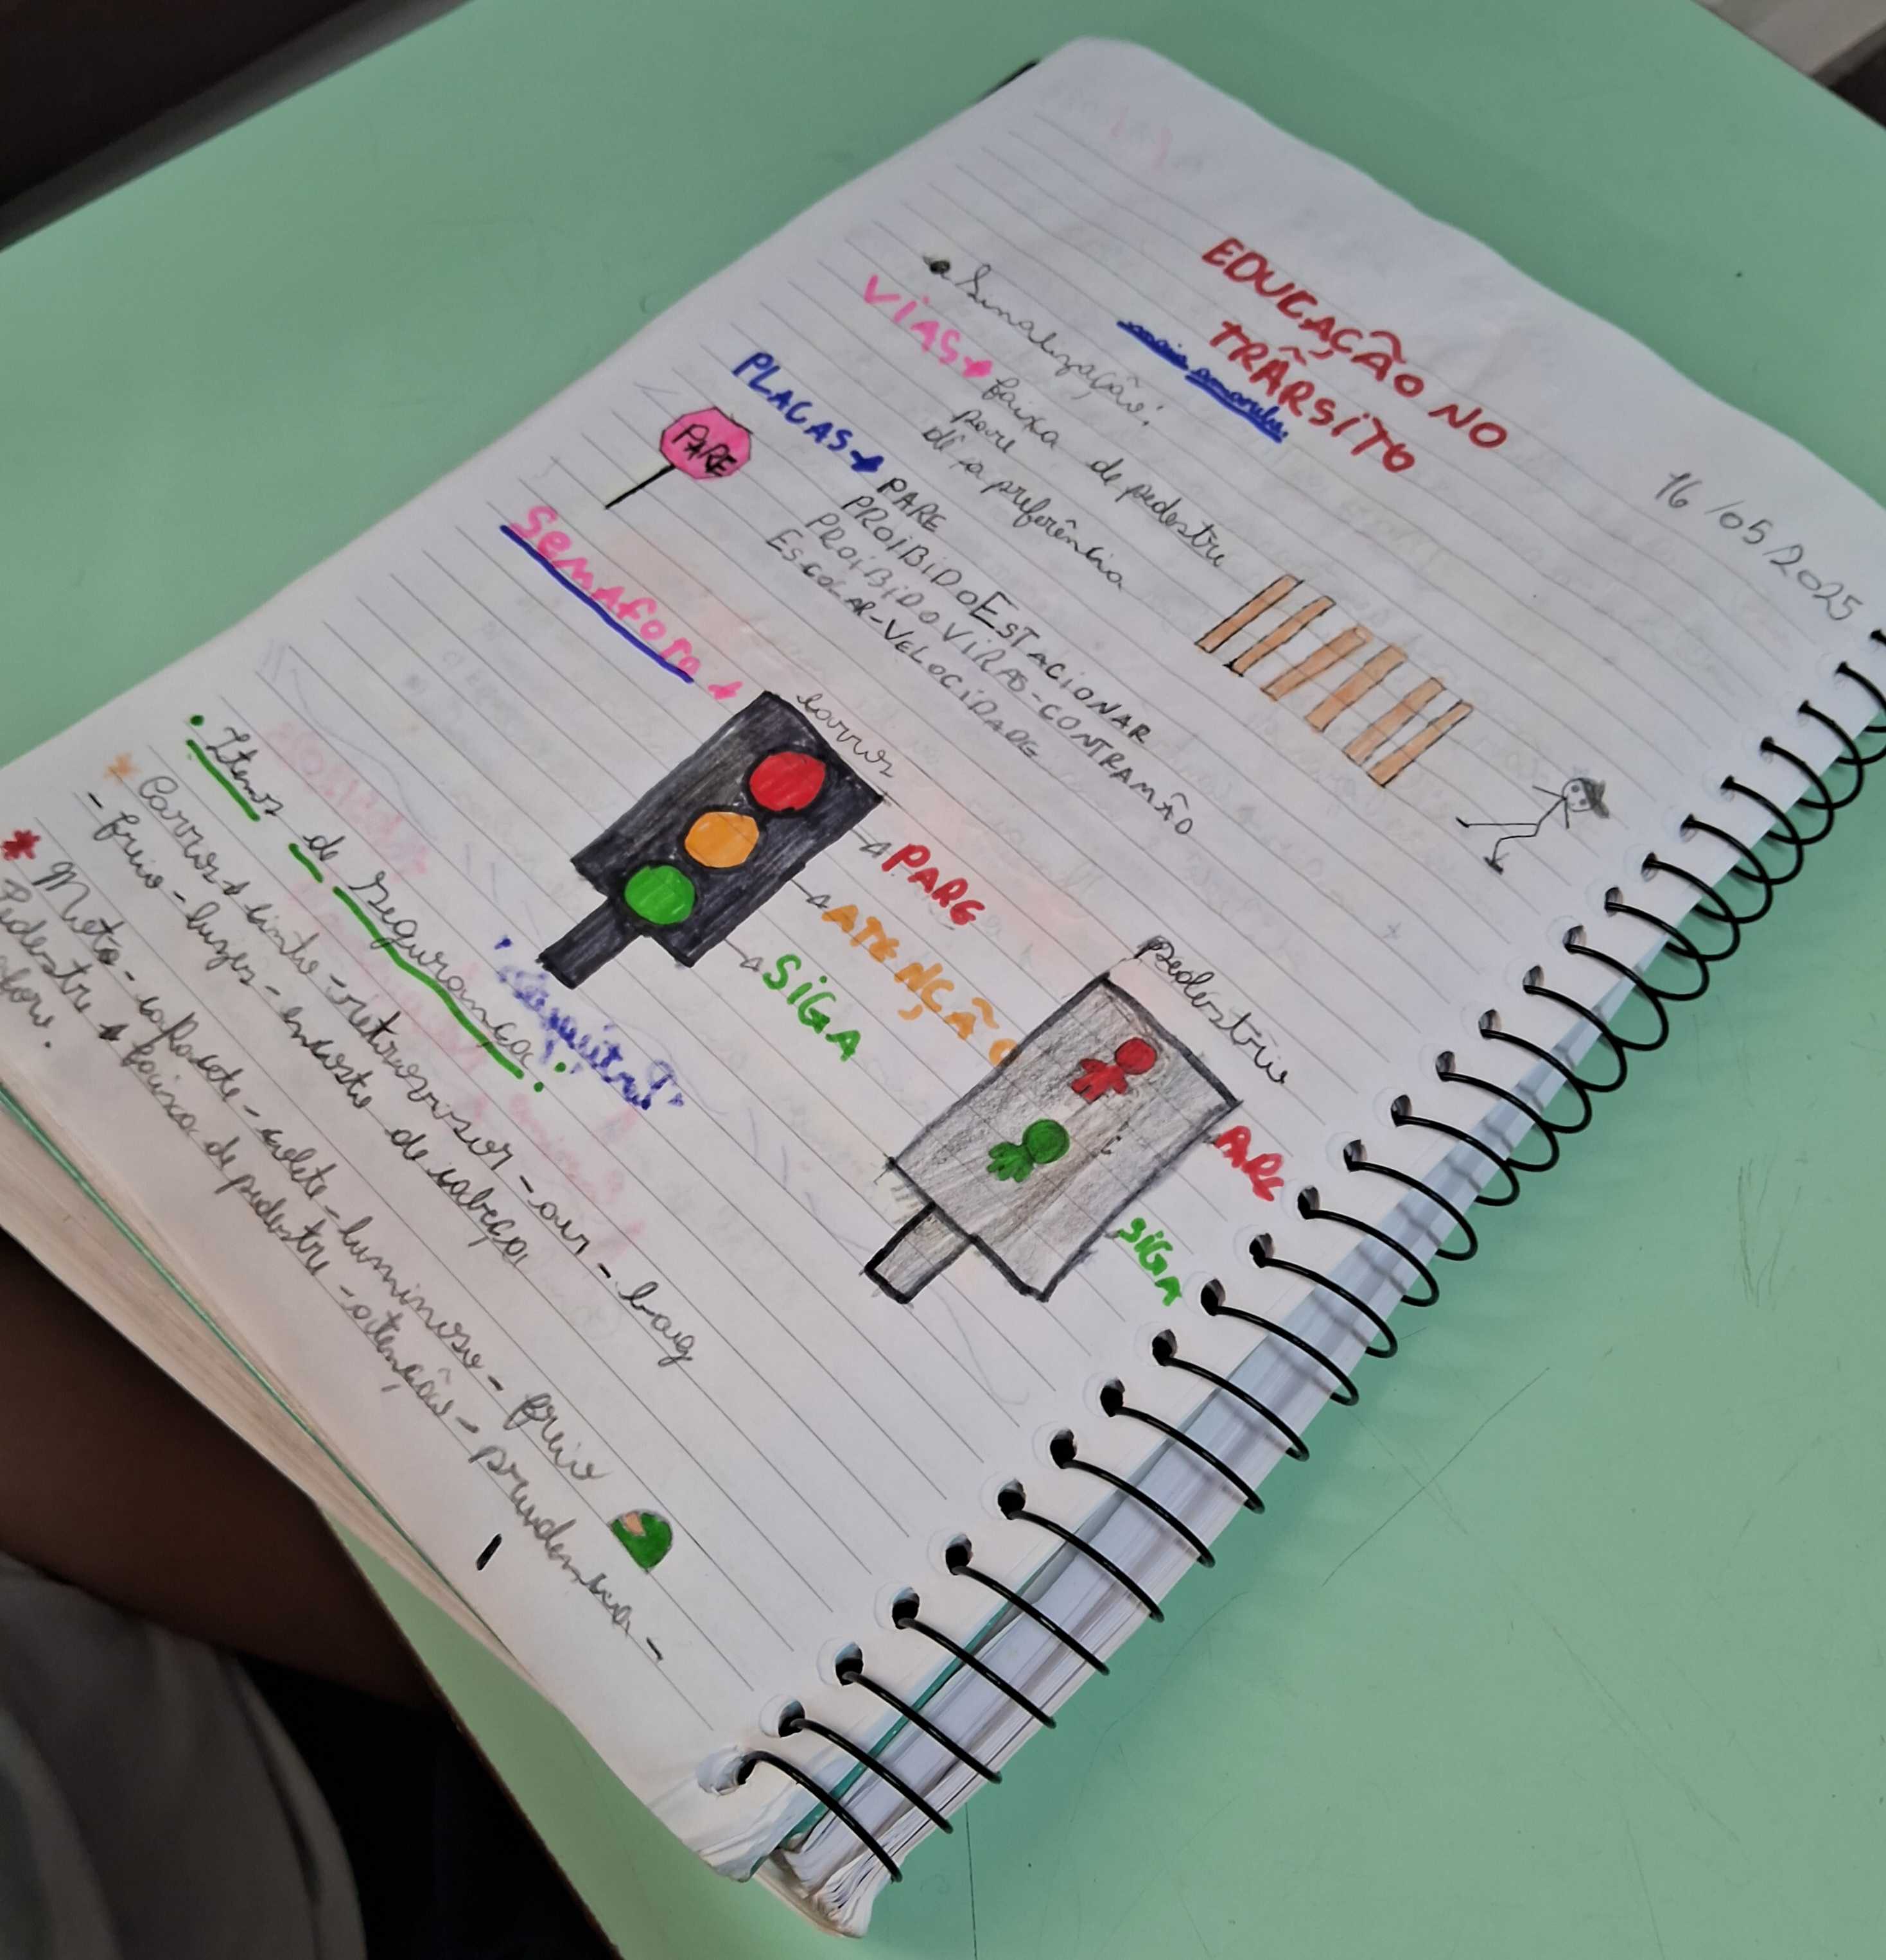 16/05/2025
EDUCAÇÃO NO
TRÂRSITO
maio amarelo.
Sinalização:
VIAS → faixa de pedestre
pare
dê a preferência
PLACAS → PARE
PROIBIDO ESTACIONAR
PROIBIDO VIRAS-CONTRAMÃO
ESCOLAR-VELOCIDADE
PARE
Semaforo →
carros
PARE
ATENÇÃO
SIGA
pedestre
PARE
SIGA
Itens de Segurança:
Carros → cinto - retrovisor - air - bag
- freio - luzes - encosto de cabeça
* Moto - capacete - colete - luminoso - freio
Pedestre → faixa de pedestre - atenção - prudência -